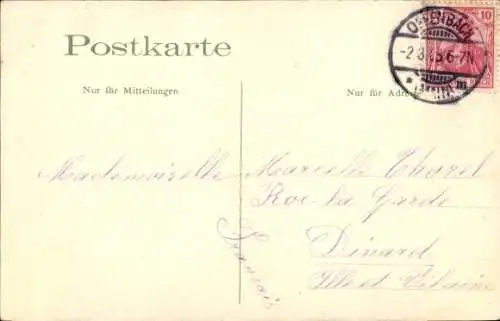 Postkarte
Nur für Mitteilungen
Nur für Adre
10
OFFENBACH
-2.8. 5 6-7N
* (MAIN)
m
Mademoiselle Marcelle Thorel
Roc-la Garde
Dinard
Ille et Vilaine
Français